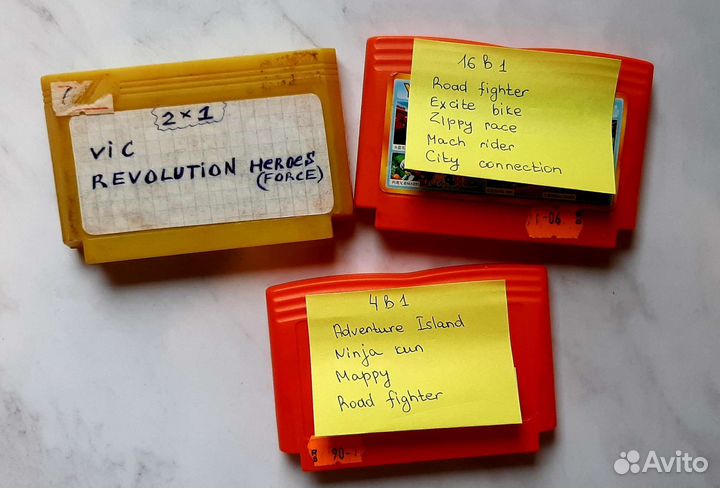 2×1
VIC
REVOLUTION HEROES
(FORCE)
16 В 1
Road fighter
Excite bike
Zippy race
Mach rider
City connection
1-06
4 В 1
Adventure Island
Ninja run
Mappy
Road fighter
90-
Avito